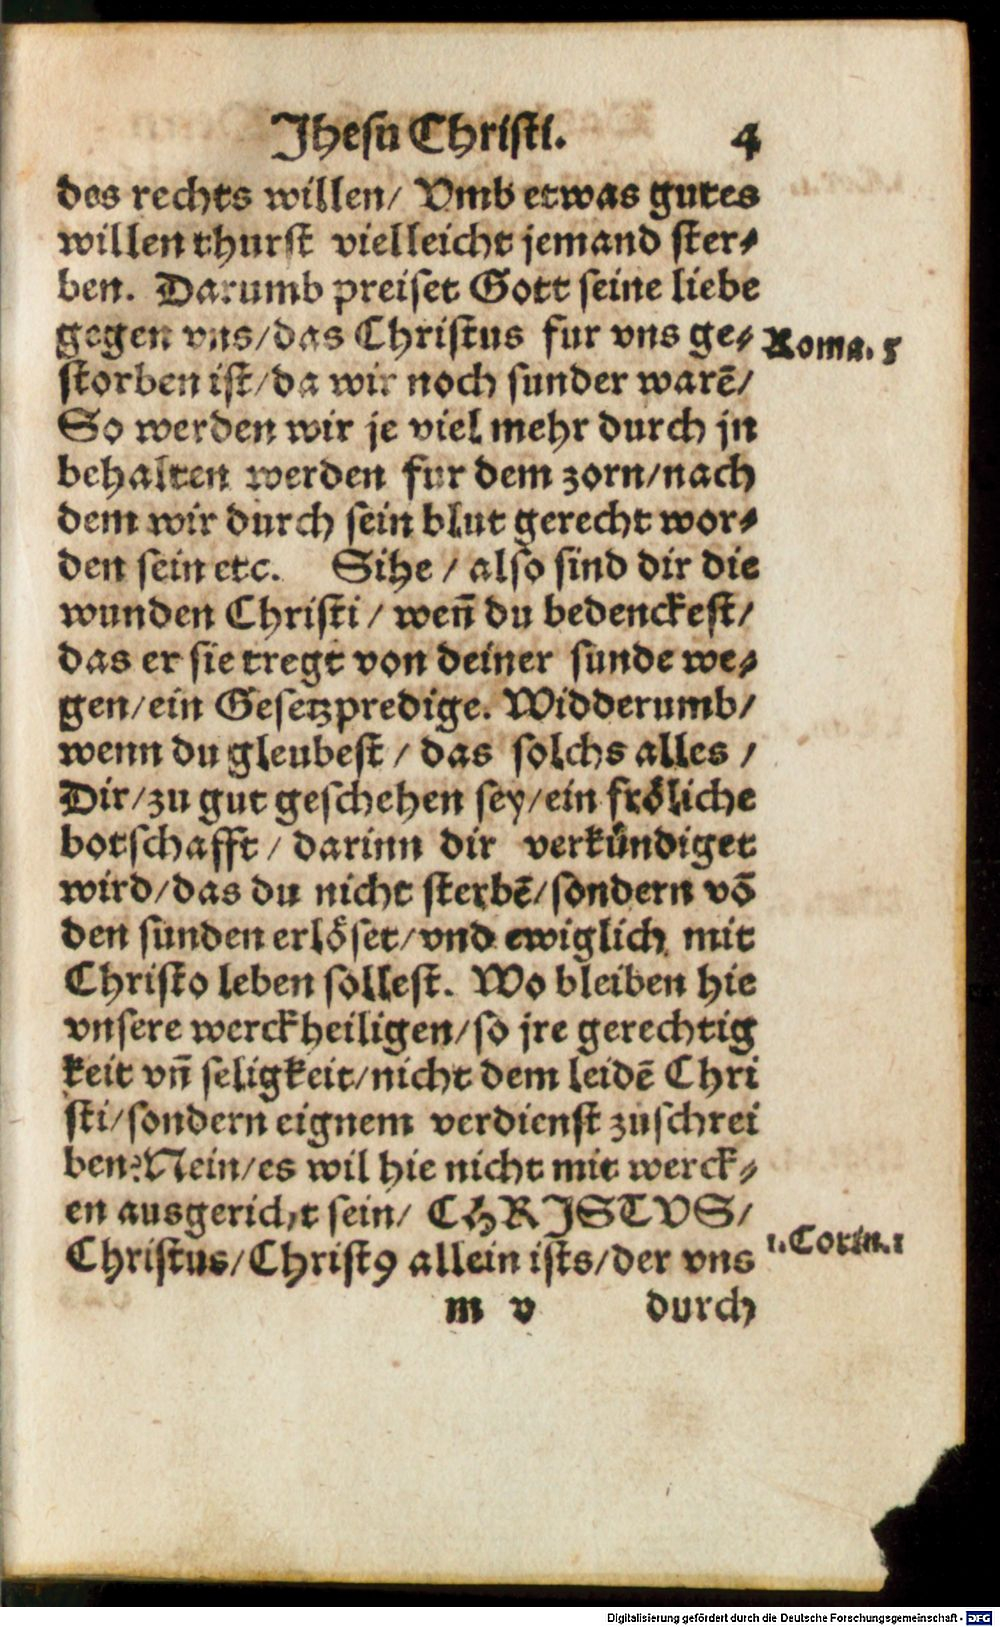 Jhesu Christi. 4
des rechts willen/ Vmb etwas gutes
willen thurst vielleicht jemand ster⸗
ben. Darumb preiset Gott seine liebe
gegen vns/das Christus fur vns ge⸗ Roma. 5
storben ist/da wir noch sunder warē/
So werden wir je viel mehr durch jn
behalten werden fur dem zorn/nach
dem wir durch sein blut gerecht wor⸗
den sein etc. Sihe / also sind dir die
wunden Christi / weñ du bedenckest/
das er sie tregt von deiner sunde we⸗
gen/ein Gesetzpredige. Widderumb/
wenn du gleubest / das solchs alles /
Dir/zu gut geschehen sey/ein fröliche
botschafft / darinn dir verkündiget
wird/das du nicht sterbē/sondern vō
den sunden erlöset/vnd ewiglich mit
Christo leben sollest. Wo bleiben hie
vnsere werckheiligen/so jre gerechtig
keit vñ seligkeit/nicht dem leidē Chri
sti/sondern eignem verdienst zuschrei
ben? Nein/es wil hie nicht mit werck⸗
en ausgericht sein/ CHRISTVS/
Christus/Christ9 allein ists/der vns 1. Corin. 1
m v durch
Digitalisierung gefördert durch die Deutsche Forschungsgemeinschaft - DFG